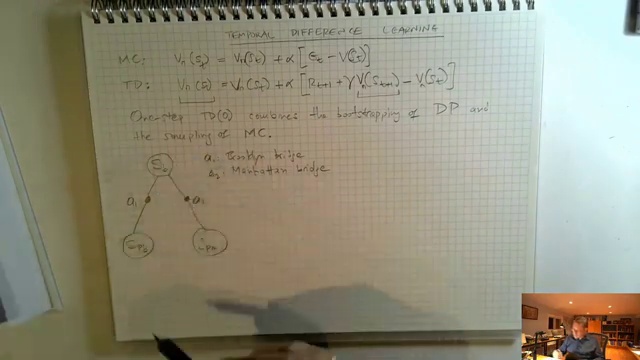 TEMPORAL DIFFERENCE LEARNING
MC: Vπ(St) = Vπ(St) + α[Gt − V(St)]
TD: Vπ(St) = Vπ(St) + α[Rt+1 + γVπ(St+1) − Vπ(St)]
One-step TD(0) combines the bootstrapping of DP and
the sampling of MC.
a1: Brooklyn bridge
a2: Manhattan bridge
St
a1 a2